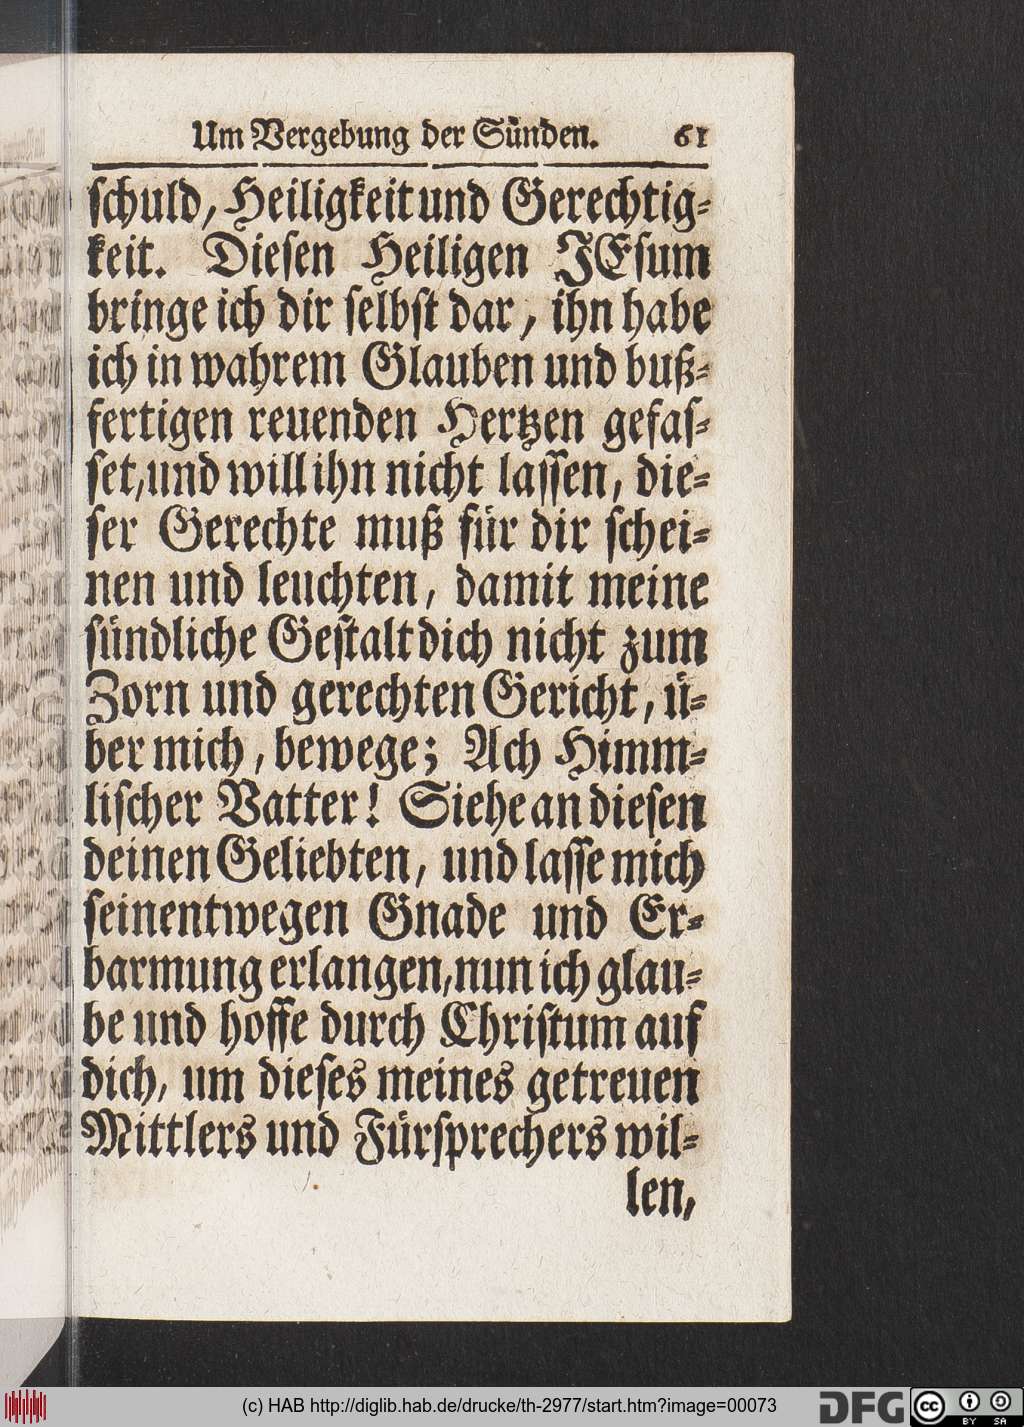 Um Vergebung der Sünden. 61
ſchuld, Heiligkeit und Gerechtig⸗
keit. Dieſen Heiligen JEſum
bringe ich dir ſelbſt dar, ihn habe
ich in wahrem Glauben und buß⸗
fertigen reuenden Hertzen gefaſ⸗
ſet, und will ihn nicht laſſen, die⸗
ſer Gerechte muß für dir ſchei⸗
nen und leuchten, damit meine
ſündliche Geſtalt dich nicht zum
Zorn und gerechten Gericht, ü⸗
ber mich, bewege; Ach Himm⸗
liſcher Vatter! Siehe an dieſen
deinen Geliebten, und laſſe mich
ſeinentwegen Gnade und Er⸗
barmung erlangen, nun ich glau⸗
be und hoffe durch Chriſtum auf
dich, um dieſes meines getreuen
Mittlers und Fürſprechers wil⸗
len,
(c) HAB http://diglib.hab.de/drucke/th-2977/start.htm?image=00073
DFG
cc BY SA